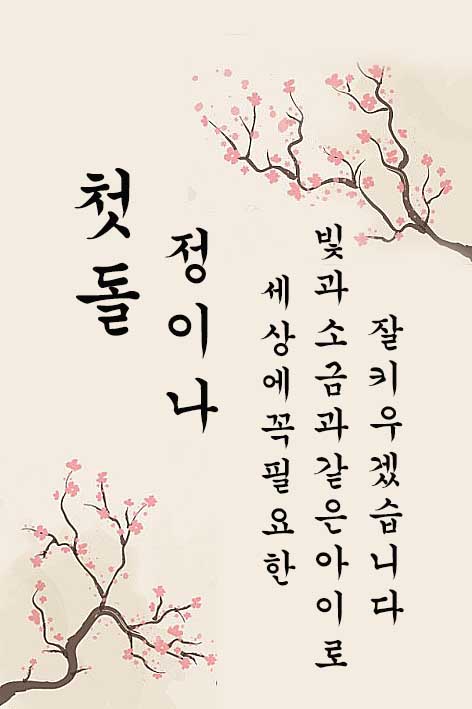 첫돌
정이나
세상에꼭필요한
빛과소금과같은아이로
잘키우겠습니다